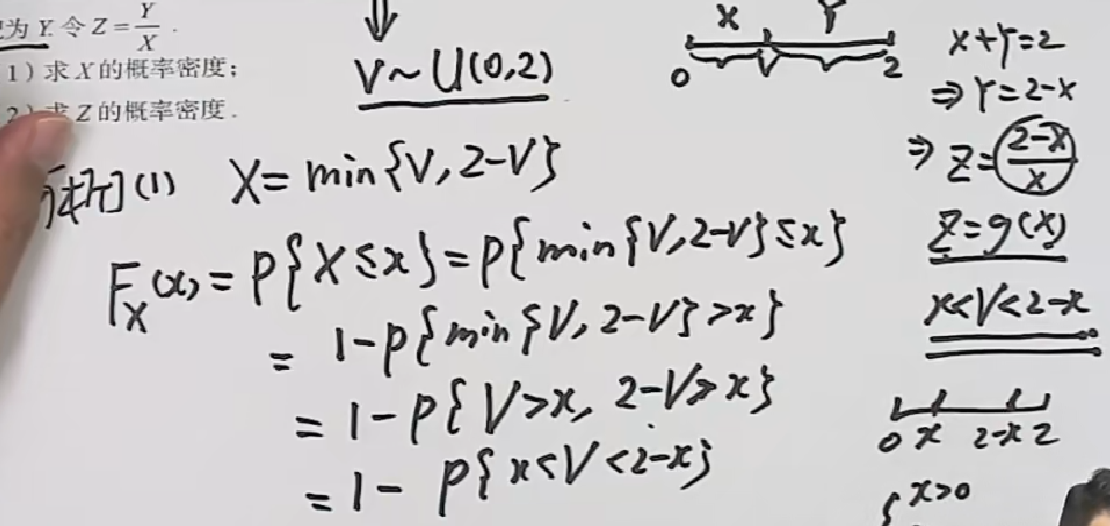 为 Y. 令 Z = Y/X .
1) 求 X 的概率密度;
2) 求 Z 的概率密度.
⇓
V ~ U(0,2)
X Y
0 V 2
X+Y=2
⇒ Y=2-X
⇒ Z = (2-X)/X
Z=g(X)
x<V<2-x
0 x 2-x 2
{ x>0
(1) X = min{V, 2-V}
F_X(x) = P{X≤x} = P{min{V, 2-V}≤x}
= 1-P{min{V, 2-V}>x}
= 1-P{V>x, 2-V>x}
= 1- P{x<V<2-x}